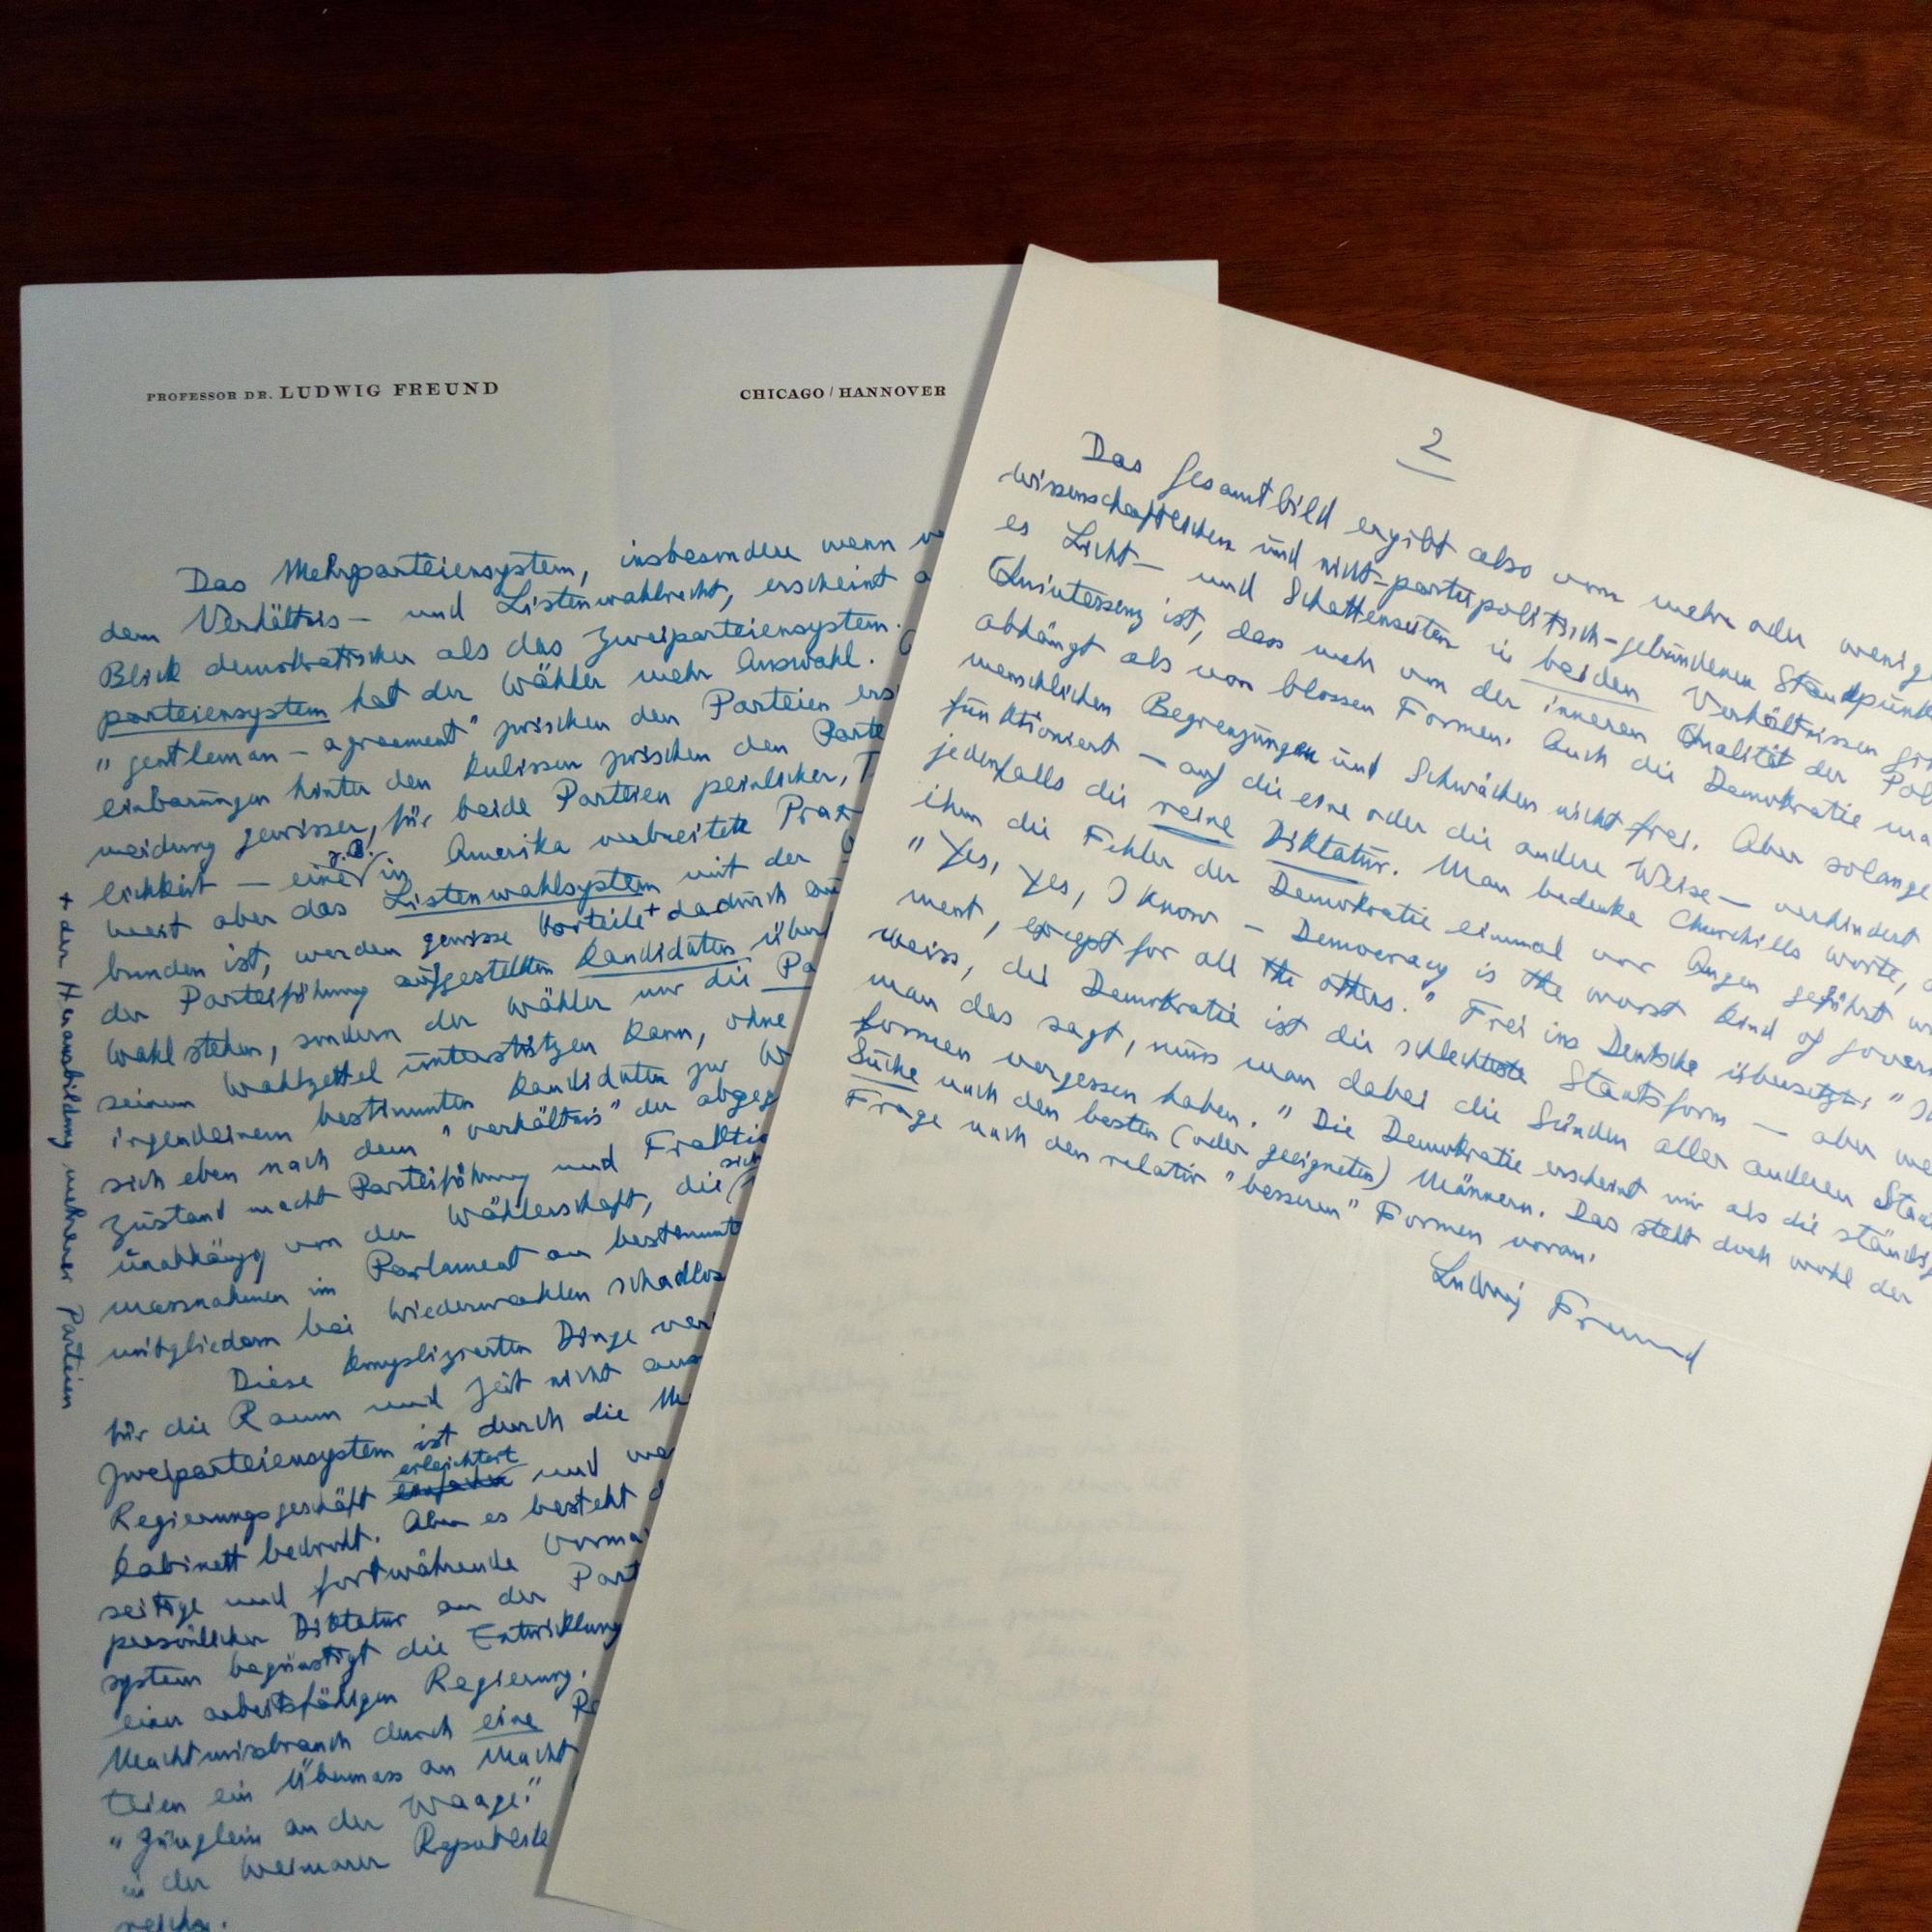 PROFESSOR DR. LUDWIG FREUND
CHICAGO / HANNOVER
Das Mehrparteiensystem, insbesondere wenn
dem Verhältnis- und Listenwahlrecht, erscheint
Blick demokratischer als das Zweiparteiensystem.
parteiensystem hat der Wähler mehr Auswahl.
"gentleman-agreement" zwischen den Parteien
einbarungen hinter den Kulissen zwischen den Parte
meidung gewisser, für beide Parteien peinlicher,
lichkeit – eine z.B. in Amerika verbreitete Prax
aber das Listenwahlsystem mit der
bunden ist, werden gewisse Vorteile+ dadurch
der Parteiführung aufgestellten Kandidaten
Wahl stehen, sondern der Wähler nur die Pa
seinem Wahlzettel unterstützen kann, ohne
irgendeinem bestimmten Kandidaten zur W
sich eben nach dem "Verhältnis" der abgeg
Zustand macht Parteiführung und Fraktio
unabhängig von der Wählerschaft, die sich
massnahmen im Parlament an bestimmt
mitgliedern bei Wiederwahlen schadlos
Diese komplizierten Dinge
für die Raum und Zeit nicht aus
Zweiparteiensystem ist durch die
Regierungsgeschäft erleichtert und
Kabinett bedroht. Aber es besteht
seitige und fortwährende
persönlicher Diktatur an der Part
system begünstigt die Entwicklung
einer arbeitsfähigen Regierung.
Machtmissbrauch durch eine
teien ein Übermass an Macht
"Zünglein an der Waage."
in der Weimarer Republik
+ der Herausbildung mehrerer Parteien
2
Das Gesamtbild ergibt also vom mehr oder wenig
wissenschaftlichen und nicht-parteipolitisch-gebundenen Standpunk
es Licht- und Schattenseiten in beiden Verhältnissen
Quintessenz ist, dass mehr von der inneren Qualität der Pol
abhängt als von blossen Formen. Auch die Demokratie
menschlichen Begrenzungen und Schwächen nicht frei. Aber solange
funktioniert – auf die eine oder die andere Weise – verhindert
jedenfalls die reine Diktatur. Man bedenke Churchills Worte,
ihm die Fehler der Demokratie einmal vor Augen geführt
"Yes, Yes, I know – Democracy is the worst kind of govern
ment, except for all the others." Frei ins Deutsche übersetzt: "
weiss, die Demokratie ist die schlechteste Staatsform – aber
man das sagt, muss man dabei die Sünden aller anderen Staa
formen vergessen haben." Die Demokratie erscheint mir als die ständi
Suche nach den besten (oder geeigneten) Männern. Das steht doch wohl der
Frage nach den relativ "besseren" Formen voran.
Ludwig Freund